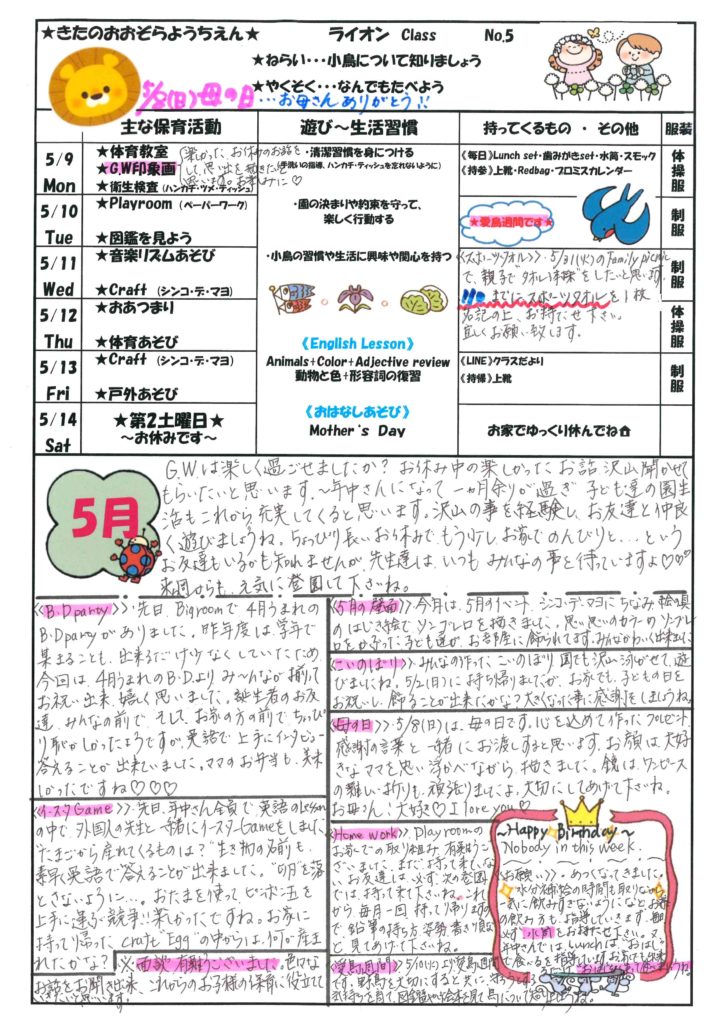 ★きたのおおぞらようちえん★ ライオン Class No.5
★ねらい・・・小鳥について知りましょう
★やくそく・・・なんでもたべよう
5/8(日)母の日…お母さんありがとう!!
主な保育活動 遊び～生活習慣 持ってくるもの ・ その他 服装
5/9 Mon
★体育教室
★G.W印象画
★衛生検査(ハンカチ・ツメ・ティッシュ)
・清潔習慣を身につける
(手洗いの指導、ハンカチ・ティッシュを忘れないように)
《毎日》Lunch set・歯みがきset・水筒・スモック
《持参》上靴・Redbag・フロミスカレンダー
体操服
5/10 Tue
★Playroom (ペーパーワーク)
★図鑑を見よう
・園の決まりや約束を守って、
楽しく行動する
★愛鳥週間です★
制服
5/11 Wed
★音楽リズムあそび
★Craft (シンコ・デ・マヨ)
・小鳥の習慣や生活に興味や関心を持つ
《スポーツタオル》・5/31(火)のFamily picnic
で、親子でタオル体操をしたいと思います。
までにスポーツタオルを1枚
名記の上、お持ち下さい。
宜しくお願い致します。
制服
5/12 Thu
★おあつまり
★体育あそび
《English Lesson》
Animals+Color+Adjective review
動物と色+形容詞の復習
体操服
5/13 Fri
★Craft (シンコ・デ・マヨ)
★戸外あそび
《LINE》クラスだより
《持帰》上靴
制服
5/14 Sat
★第2土曜日★
～お休みです～
《おはなしあそび》
Mother's Day
お家でゆっくり休んでね
5月
G.Wは楽しく過ごせましたか? お休み中の楽しかったお話沢山聞かせて
もらいたいと思います。～年中さんになって一ヵ月余りが過ぎ 子ども達の園生
活もこれから充実してくると思います。沢山の事を経験し、お友達と仲良
く遊びましょうね。ちょっぴり長いお休みで、もう少しお家でのんびりと...という
お友達もいるかも知れませんが、先生達は、いつもみんなの事を待っていますよ♡♡
来週からも、元気に登園して下さいね。
《B.Dparty》・先日、Bigroomで4月うまれの
B.Dpartyがありました。昨年度は、学年で
集まることも、出来るだけ少なくしていたため
今回は、4月うまれのB.Dより み～んなが揃って
お祝い出来、嬉しく思いました。誕生者のお友
達、みんなの前で、そして、お家の方の前で ちょっぴ
り恥ずかしかったようですが、英語で上手にインタビュー
答えることが出来ていました。ママのお弁当も、美味
しかったですね♡♡♡
《イースターGame》・先日、年中さん全員で、英語のLesson
の中で、外国人の先生と一緒にイースターGameをしました。
“たまごから産れてくるものは?”生き物の名前も、
素早く英語で答えることが出来ました。
とさないように...。おたまを使って、ピンポン玉を
上手に運ぶ競争!! 楽しかったですね。お家に
持って帰ったcraft Eggの中からは、何が産ま
れたかな?
※面談有難うございました。色々な
お話をお聞き出来、これからのお子様の保育に役立てて
いきたいと思います。
《5月の壁面》今月は、5月のイベント、シンコ・デ・マヨにちなみ、絵の具
のはじき絵でソンブレロを描きました。思い思いのカラーのソンブレ
ロをかぶった子ども達が、お部屋に飾られてます。みんなかわいく出来ました
《こいのぼり》みんなの作ったこいのぼり園でも沢山泳がせて、遊
びましたね。5/2(月)に持ち帰りましたが、お家でも、子どもの日を
お祝いし、飾ることが出来たかな?大きくなった事に感謝をしましょうね。
《母の日》・5/8(日)は、母の日です。心を込めて作ったプレゼント、
感謝の言葉と一緒にお渡しすると思います。お顔は、大好
きなママを思い浮かべながら、描きました。鏡は、ワンピース
の難しい折りも、頑張りましたよ。大切にしてあげて下さいね。
お母さん!大好き♡ I love you♡
《Home work》Play roomの
お家での取り組み、有難うござ
いました。まだ、持って来ていな
いお友達は、必ず、次の登園
では、持って来て下さいね。これ
から毎月一回、持って帰ります
ので、鉛筆の持ち方、姿勢、書き順な
ど見てあげて下さいね。
《愛鳥週間》5/10(火)より愛鳥週間
です。野鳥を大切にすると共に、
気持ちを育て、図鑑や絵本を見て鳥について知りましょうね。
～Happy Birthday～
Nobody in this week.
《お願い》・あつくなってきました。
水分補給の時間も取りながら
一気に飲みすぎないようになど、お茶
の飲み方も、指導しています。毎日
必ず、水筒をお持たせ下さい。又、